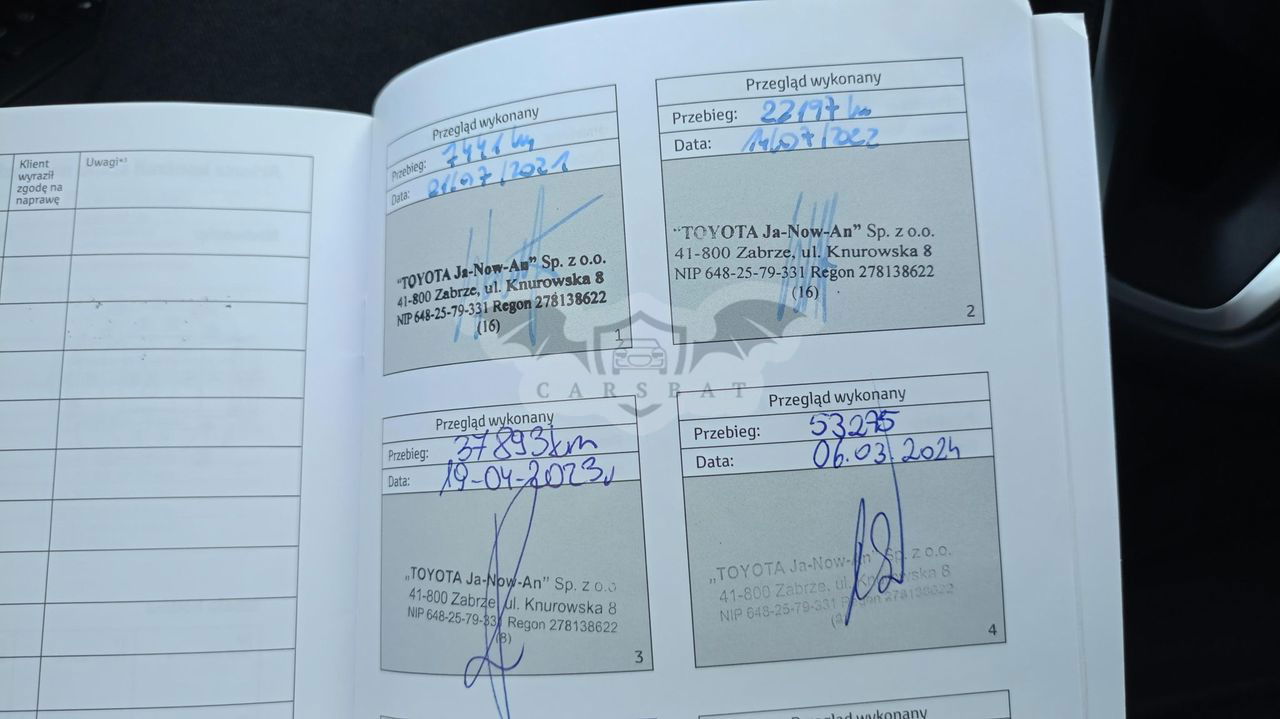 Klient
wyraził
zgodę na
naprawę
Uwagi*⁾
Przegląd wykonany
Przebieg: 7441 km
Data: 21/07/2021
"TOYOTA Ja-Now-An" Sp. z o.o.
41-800 Zabrze, ul. Knurowska 8
NIP 648-25-79-331 Regon 278138622
(16)
1
Przegląd wykonany
Przebieg: 22197 km
Data: 14/07/2022
"TOYOTA Ja-Now-An" Sp. z o.o.
41-800 Zabrze, ul. Knurowska 8
NIP 648-25-79-331 Regon 278138622
(16)
2
CARSBAT
Przegląd wykonany
Przebieg: 37893km
Data: 19-04-2023r
„TOYOTA Ja-Now-An" Sp. z o.o
41-800 Zabrze, ul. Knurowska 8
NIP 648-25-79-331 Regon 278138622
(8)
3
Przegląd wykonany
Przebieg: 53275
Data: 06.03.2024
„TOYOTA Ja-Now-An" Sp. z o.o.
41-800 Zabrze, ul. Knurowska 8
NIP 648-25-79-331 Regon 278138622
4
Przegląd wykonany